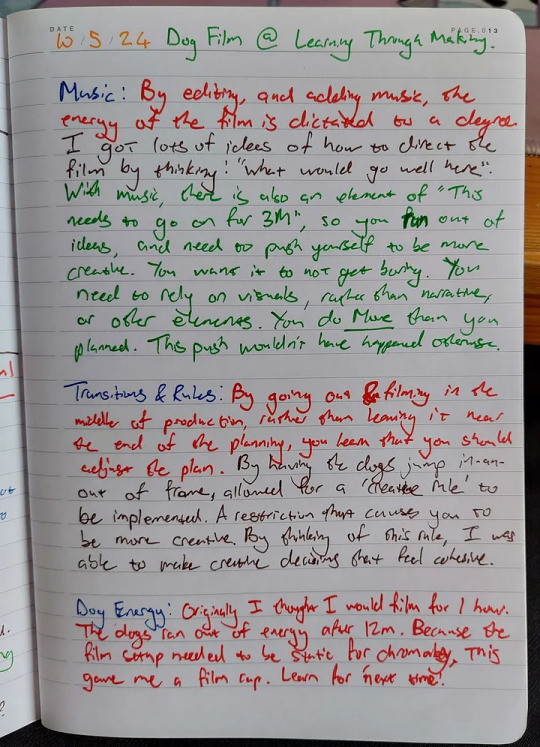 DATE PAGE. 013
10/5/24 Dog Film @ Learning Through Making.
Music: By editing, and adding music, the
energy of the film is dictated to a degree.
I got lots of ideas of how to direct the
film by thinking: "What would go well here".
With music, there is also an element of "This
needs to go on for 3M", so you run out of
ideas, and need to push yourself to be more
creative. You want it to not get boring. You
need to rely on visuals, rather than narrative,
or other elements. You do More than you
planned. This push wouldn't have happened otherwise.
Transitions & Rules: By going out & filming in the
middle of production, rather than leaving it near
the end of the planning, you learn that you should
adjust the plan. By having the dogs jump in-an-
out of frame, allowed for a 'creative rule' to
be implemented. A restriction that causes you to
be more creative. By thinking of this rule, I was
able to make creative decisions that feel cohesive.
Dog Energy: Originally I thought I would film for 1 hour.
The dogs ran out of energy after 12m. Because the
film setup needed to be static for chromakey, This
gave me a film cap. Learn for 'next time'.